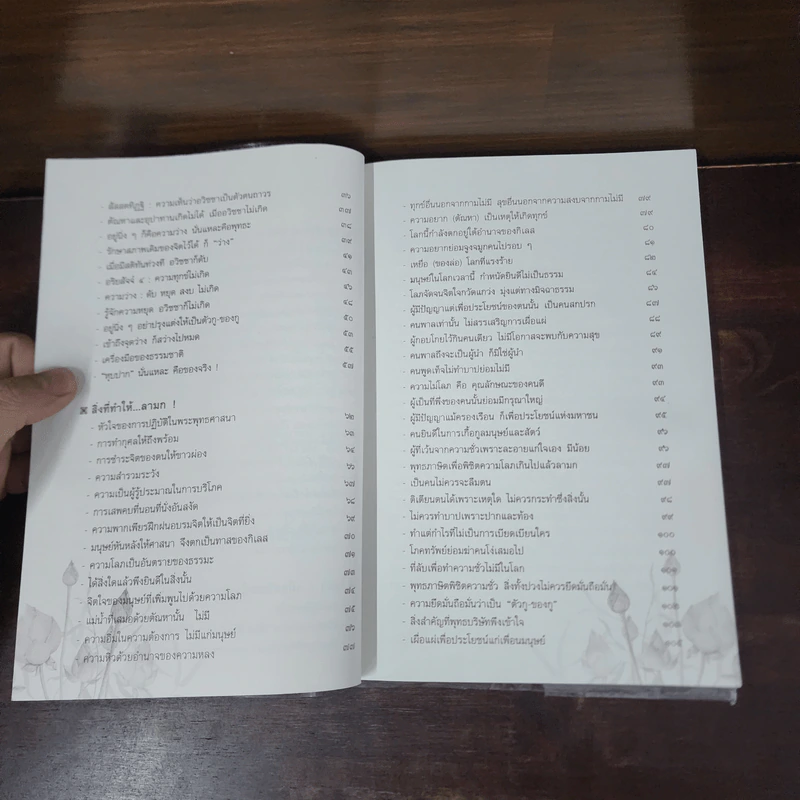 - สัสสตทิฏฐิ : ความเห็นว่าอวิชชาเป็นตัวตนถาวร ๓๖
- ตัณหาและอุปาทานเกิดไม่ได้ เมื่ออวิชชาไม่เกิด ๓๗
- อยู่นิ่ง ๆ ก็คือความว่าง นั่นแหละคือพุทธะ ๓๘
- รักษาสภาพเดิมของจิตไว้ได้ ก็ "ว่าง" ๓๙
- เมื่อมีสติทันท่วงที อวิชชาก็ดับ ๔๑
- อริยสัจจ์ ๔ : ความทุกข์ไม่เกิด ๔๓
- ความว่าง : ดับ หยุด สงบ ไม่เกิด ๔๖
- รู้จักความหยุด อวิชชาก็ไม่เกิด ๔๘
- อยู่นิ่ง ๆ อย่าปรุงแต่งให้เป็นตัวกู-ของกู ๕๐
- เข้าถึงจุดว่าง ก็สว่างไปหมด ๕๓
- เครื่องมือของธรรมชาติ ๕๕
- "หุบปาก" นั่นแหละ คือของจริง ! ๕๗
สิ่งที่ทำให้...ลามก !
- หัวใจของการปฏิบัติในพระพุทธศาสนา ๖๒
- การทำกุศลให้ถึงพร้อม ๖๓
- การชำระจิตของตนให้ขาวผ่อง ๖๔
- ความสำรวมระวัง ๖๖
- ความเป็นผู้รู้ประมาณในการบริโภค ๖๗
- การเสพคบที่นอนที่นั่งอันสงัด ๖๘
- ความพากเพียรฝึกฝนอบรมจิตให้เป็นจิตที่ยิ่ง ๖๙
- มนุษย์หันหลังให้ศาสนา จึงตกเป็นทาสของกิเลส ๗๐
- ความโลภเป็นอันตรายของธรรมะ ๗๑
- ได้สิ่งใดแล้วพึงยินดีในสิ่งนั้น ๗๓
- จิตใจของมนุษย์ที่เพิ่มพูนไปด้วยความโลภ ๗๔
- แม่น้ำที่เสมอด้วยตัณหานั้น ไม่มี ๗๕
- ความอิ่มในความต้องการ ไม่มีแก่มนุษย์ ๗๖
- ความหิวด้วยอำนาจของความหลง ๗๗
- ทุกข์อื่นนอกจากกามไม่มี สุขอื่นนอกจากความสงบจากกามไม่มี ๗๙
- ความอยาก (ตัณหา) เป็นเหตุให้เกิดทุกข์ ๗๙
- โลกนี้กำลังตกอยู่ใต้อำนาจของกิเลส ๘๐
- ความอยากย่อมจูงจมูกคนไปรอบ ๆ ๘๑
- เหยื่อ (ของล่อ) โลกที่แรงร้าย ๘๒
- มนุษย์ในโลกเวลานี้ กำหนัดยินดีไม่เป็นธรรม ๘๔
- โลภจัดจนจิตใจกวัดแกว่ง มุ่งแต่ทางมิจฉาธรรม ๘๖
- ผู้มีปัญญาแต่เพื่อประโยชน์ของตนนั้น เป็นคนสกปรก ๘๗
- คนพาลเท่านั้น ไม่สรรเสริญการเผื่อแผ่ ๘๘
- ผู้กอบโกยไว้กินคนเดียว ไม่มีโอกาสจะพบกับความสุข ๘๙
- คนพาลถึงจะเป็นผู้นำ ก็มิใช่ผู้นำ ๙๑
- คนพูดเท็จไม่ทำบาปย่อมไม่มี ๙๓
- ความไม่โลภ คือ คุณลักษณะของคนดี ๙๓
- ผู้เป็นที่พึ่งของคนนั้นย่อมมีกรุณาใหญ่ ๙๔
- ผู้มีปัญญาแม้ครองเรือน ก็เพื่อประโยชน์แห่งมหาชน ๙๕
- คนยินดีในการเกื้อกูลมนุษย์และสัตว์ ๙๖
- ผู้ที่เว้นจากความชั่วเพราะละอายแก่ใจเอง มีน้อย ๙๖
- พุทธภาษิตเพื่อพิชิตความโลภเกินไปแล้วลามก ๙๗
- เป็นคนไม่ควรจะลืมตน ๙๗
- ติเตียนตนได้เพราะเหตุใด ไม่ควรกระทำซึ่งสิ่งนั้น ๙๘
- ไม่ควรทำบาปเพราะปากและท้อง ๙๙
- ทำแต่กำไรที่ไม่เป็นการเบียดเบียนใคร ๑๐๐
- โภคทรัพย์ย่อมฆ่าคนโง่เสมอไป ๑๐๐
- ที่ลับเพื่อทำความชั่วไม่มีในโลก
- พุทธภาษิตพิชิตความชั่ว สิ่งทั้งปวงไม่ควรยึดมั่นถือมั่น
- ความยึดมั่นถือมั่นว่าเป็น "ตัวกู-ของกู"
- สิ่งสำคัญที่พุทธบริษัทพึงเข้าใจ
- เผื่อแผ่เพื่อประโยชน์แก่เพื่อนมนุษย์